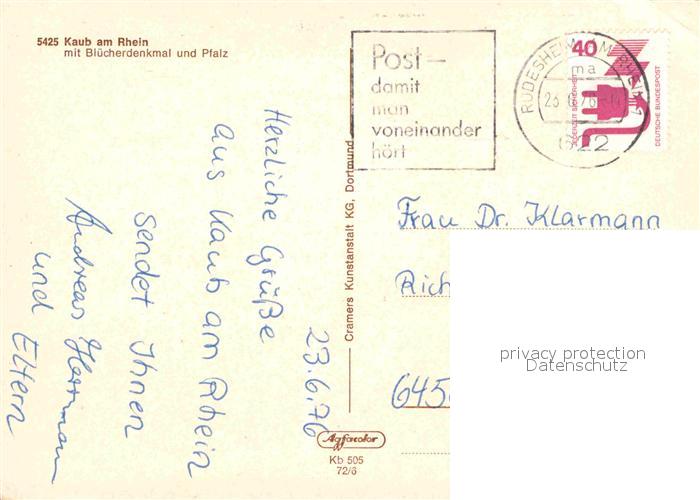 5425 Kaub am Rhein
mit Blücherdenkmal und Pfalz
Post –
damit
man
voneinander
hört
RÜDESHEIM AM RHEIN 1
ma
622
40
JEDERZEIT SICHERHEIT
DEUTSCHE BUNDESPOST
23.6.76
Herzliche Grüße
aus Kaub am Rhein
sendet Ihnen
Andreas
und Eltern
Cramers Kunstanstalt KG, Dortmund
Frau Dr. Klarmann
Rich
645
privacy protection
Datenschutz
Agfacolor
Kb 505
72/6